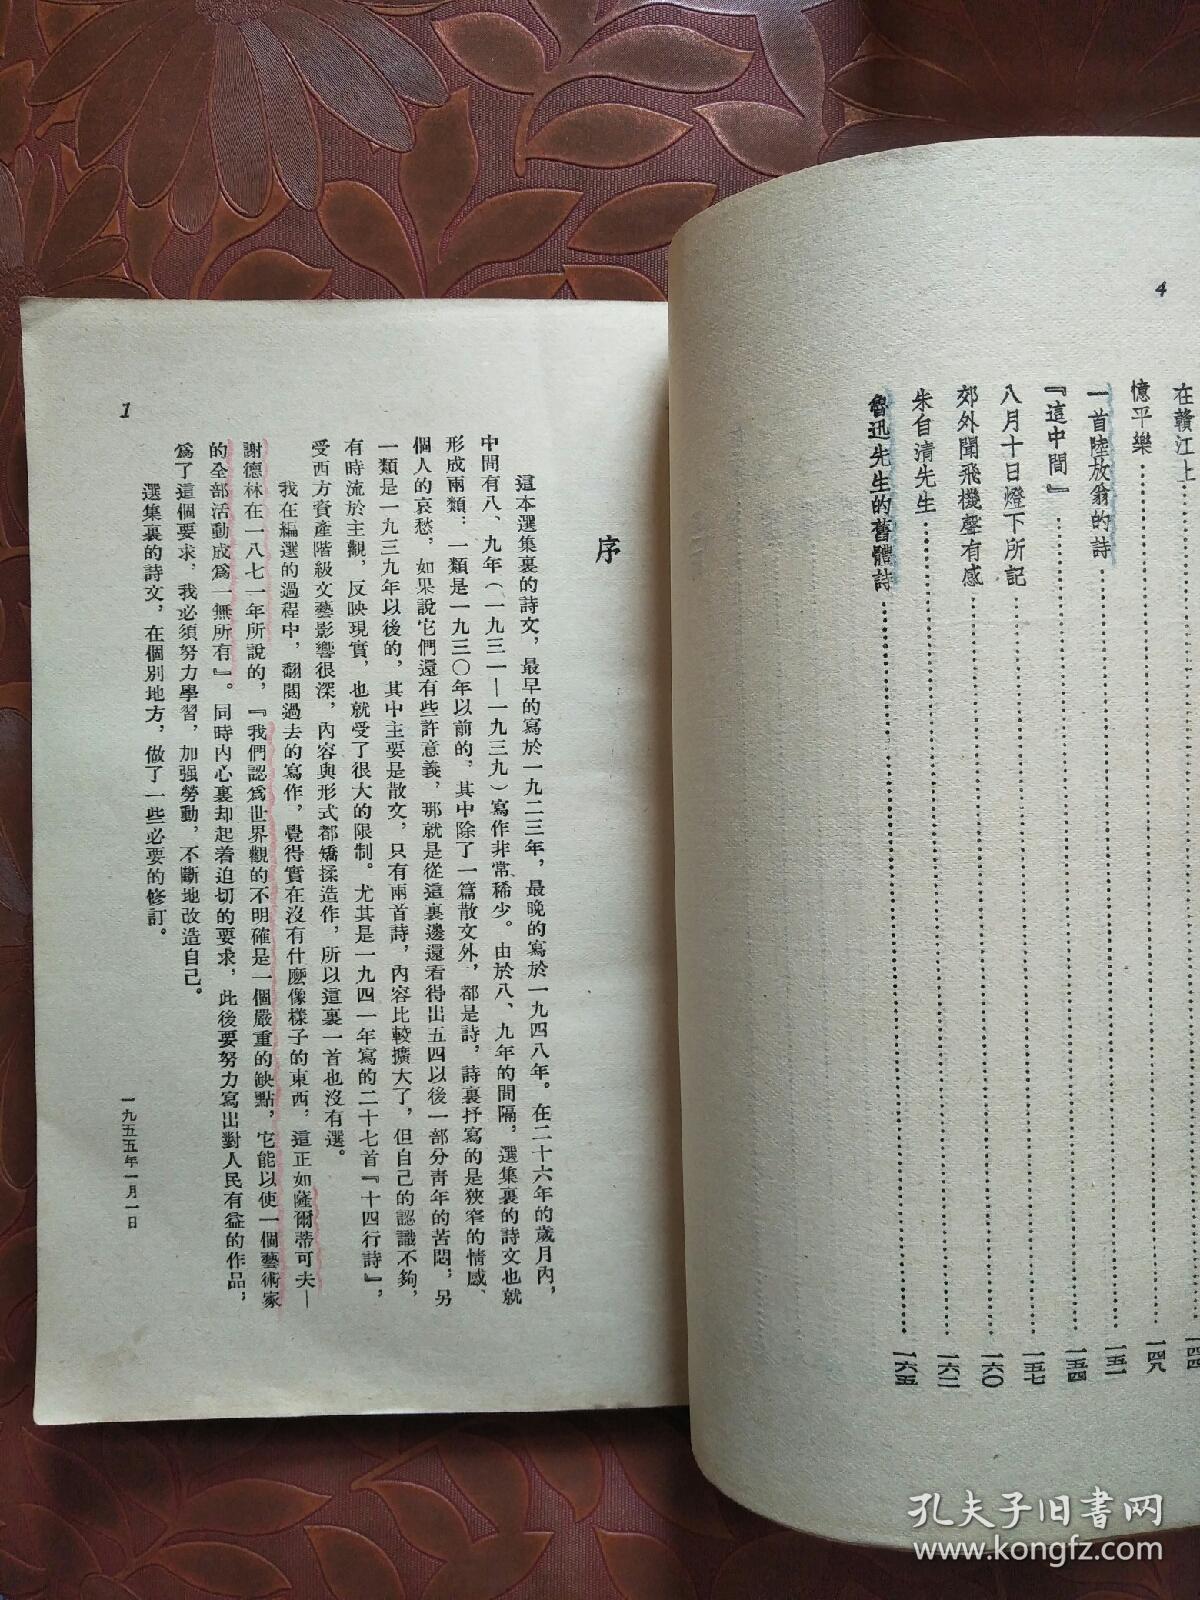 4
在贛江上
一四四
憶平樂
一四八
一首陸放翁的詩
一五一
『這中間』
一五四
八月十日燈下所記
一五七
郊外聞飛機聲有感
一六〇
朱自清先生
一六二
魯迅先生的舊體詩
一六五
序
這本選集裏的詩文，最早的寫於一九二三年，最晚的寫於一九四八年。在二十六年的歲月內，
中間有八、九年（一九三一—一九三九）寫作非常稀少。由於八、九年的間隔，選集裏的詩文也就
形成兩類：一類是一九三〇年以前的，其中除了一篇散文外，都是詩，詩裏抒寫的是狹窄的情感、
個人的哀愁，如果說它們還有些許意義，那就是從這裏邊還看得出五四以後一部分青年的苦悶；另
一類是一九三九年以後的，其中主要是散文，只有兩首詩，內容比較擴大了，但自己的認識不夠，
有時流於主觀，反映現實，也就受了很大的限制。尤其是一九四一年寫的二十七首『十四行詩』，
受西方資產階級文藝影響很深，內容與形式都矯揉造作，所以這裏一首也沒有選。
我在編選的過程中，翻閱過去的寫作，覺得實在沒有什麼像樣子的東西，這正如薩爾蒂可夫—
謝德林在一八七一年所說的，『我們認爲世界觀的不明確是一個嚴重的缺點，它能以使一個藝術家
的全部活動成爲一無所有』。同時內心裏却起着迫切的要求，此後要努力寫出對人民有益的作品，
爲了這個要求，我必須努力學習，加强勞動，不斷地改造自己。
選集裏的詩文，在個別地方，做了一些必要的修訂。
一九五五年一月一日
1
孔夫子旧书网
www.kongfz.com